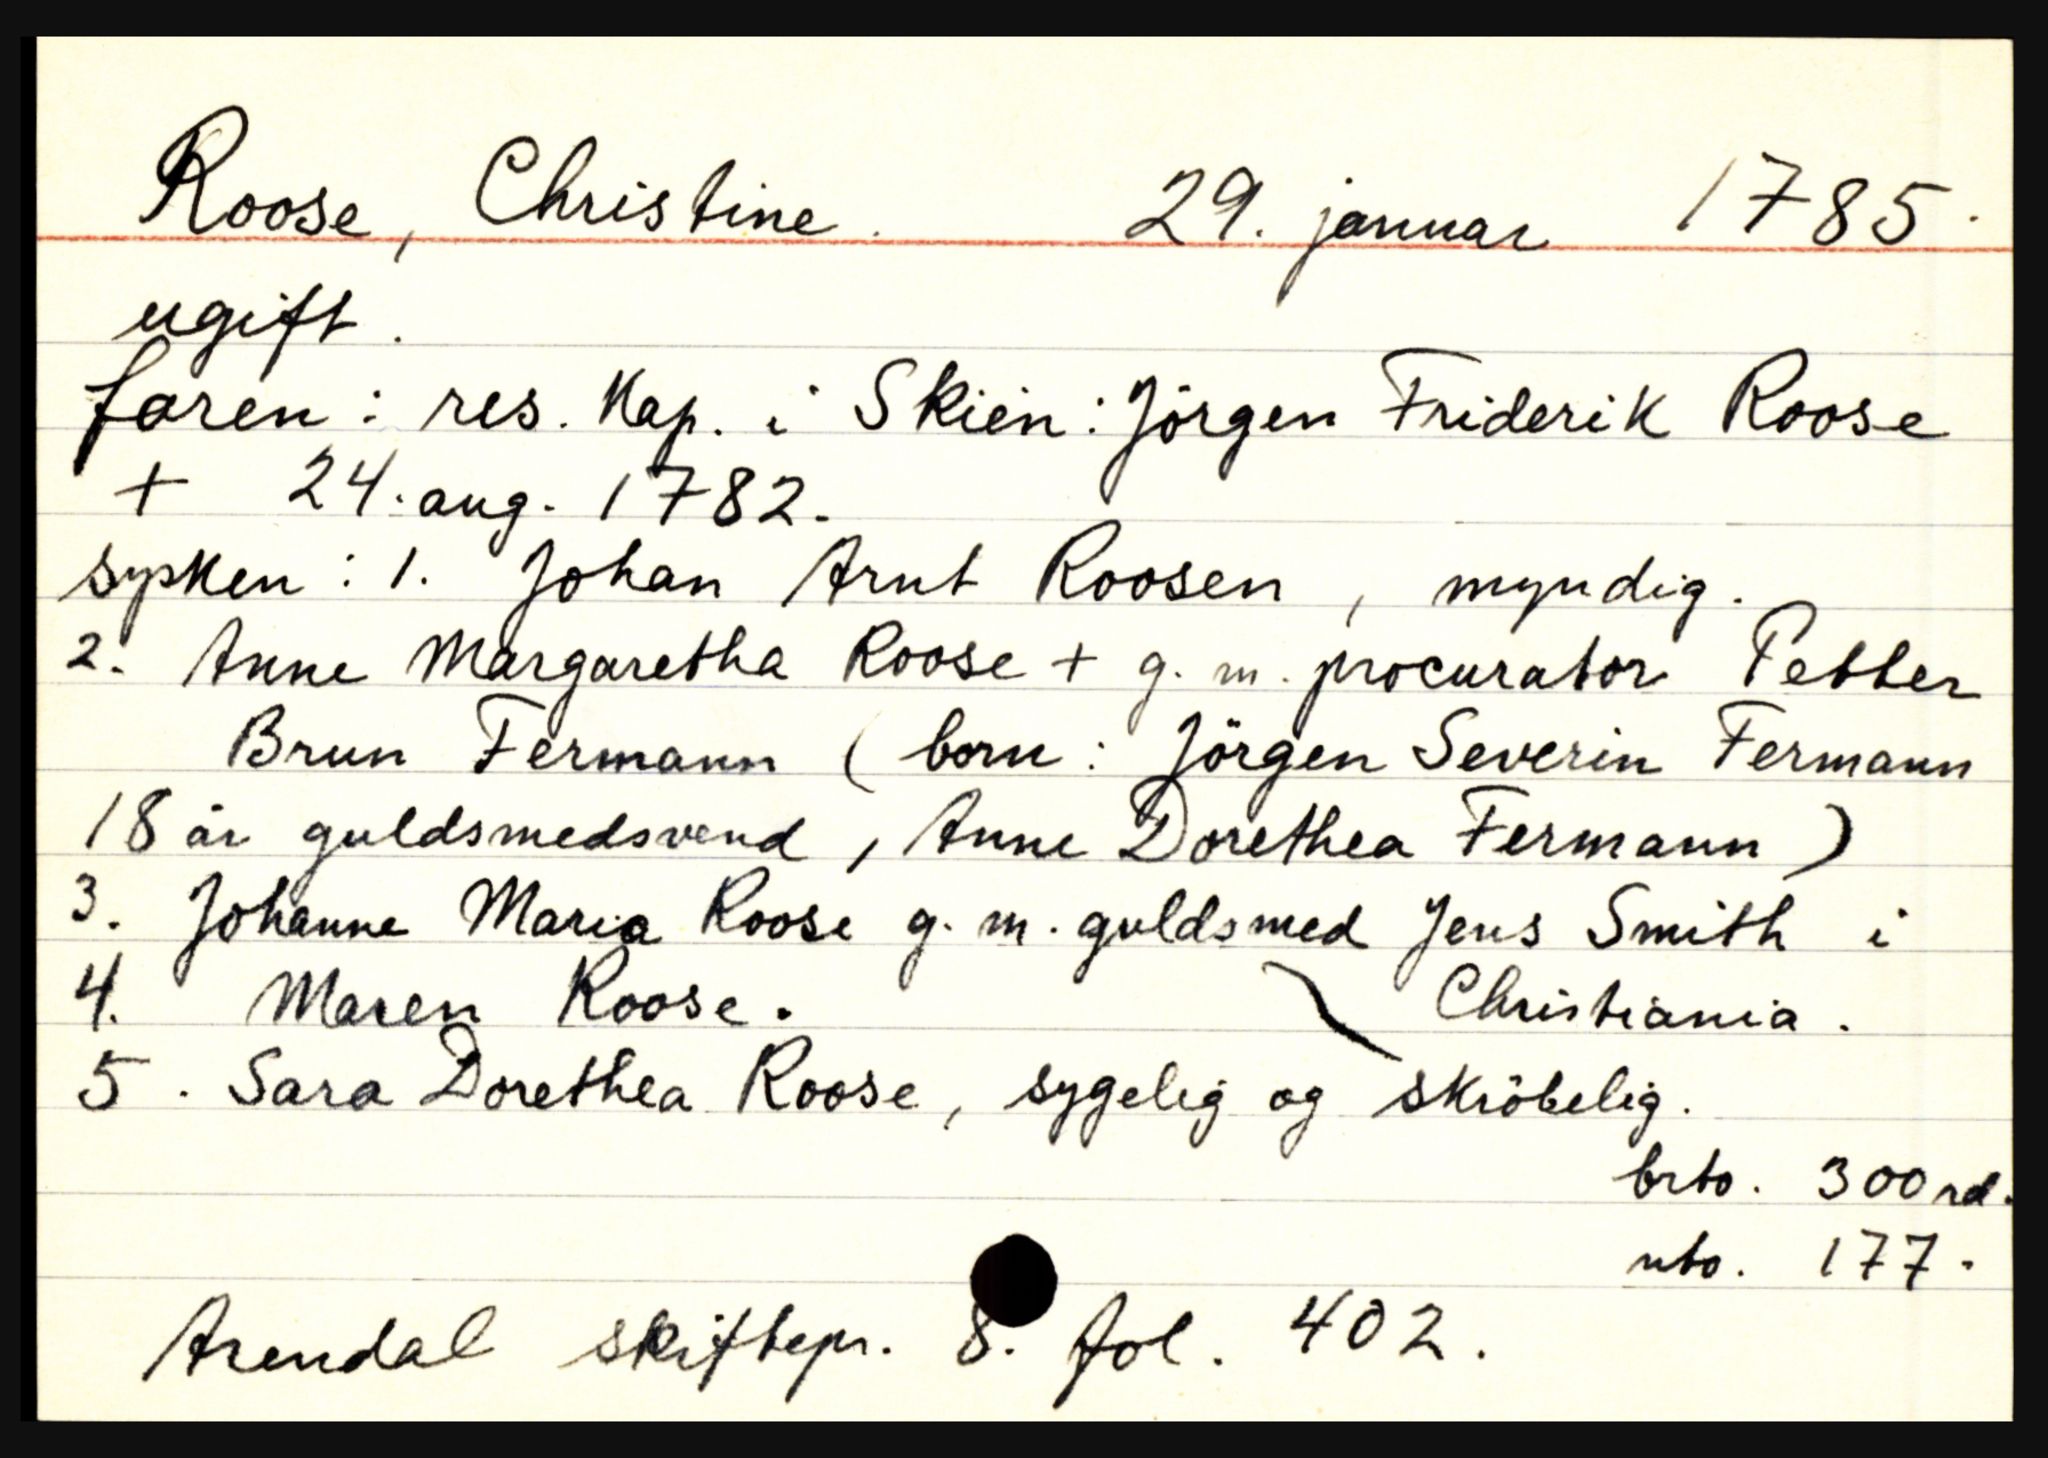 Roose, Christine. 29. januar 1785.
ugift.
faren: res. kap. i Skien: Jörgen Friderik Roose
+ 24. aug. 1782.
sysken: 1. Johan Arnt Roosen, myndig.
2. Anne Margaretha Roose + g. m. procurator Petter
Brun Fermann (born: Jörgen Severin Fermann
18 år guldsmedsvend, Anne Dorethea Fermann)
3. Johanne Maria Roose g. m. guldsmed Jens Smith i
Christiania.
4. Maren Roose.
5. Sara Dorethea Roose, sygelig og skröbelig.
brto. 300 rd.
nto. 177.
Arendal skiftepr. 8. fol. 402.